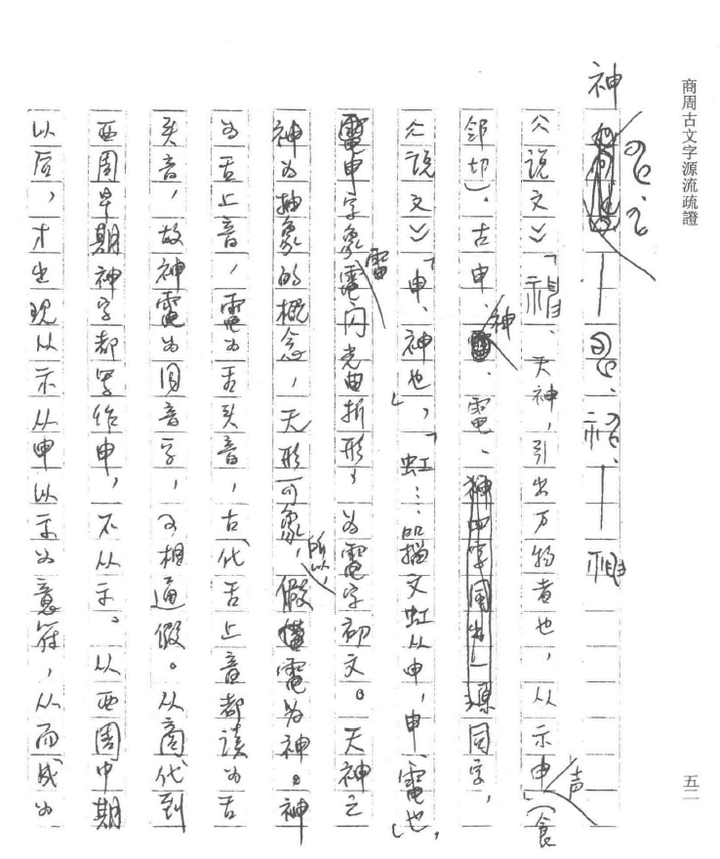 商周古文字源流疏證
五二
神
《說文》「神、天神，引出万物者也，从示申声」（食
邻切）。古申、神、電、同字，
《說文》「申、神也」，「虹…籀文虹从申，申、電也」，
申字象雷電闪光曲折形，为電字初文。天神之
神为抽象的概念，无形可象，所以，假電为神。神
为舌上音，電为舌头音，古代舌上音都读为舌
头音，故神電为同音字，可相通假。从商代到
西周早期神字都写作申，不从示。从西周中期
以后，才出现从示从申以示为意符，从而成为